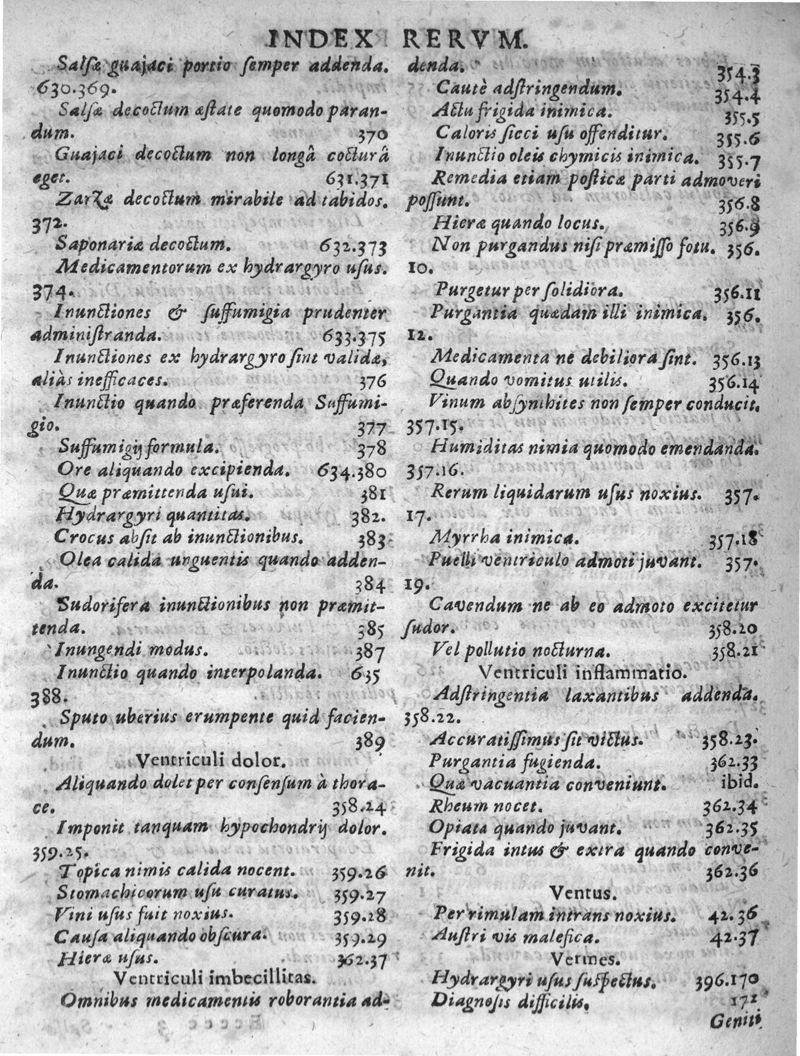 INDEX RERVM.
Salsæ guajaci portio semper addenda.
630.369.
Salsæ decoctum æstate quomodo paran-
dum. 370
Guajaci decoctum non longâ cocturâ
eget. 631.371
Zarzæ decoctum mirabile ad tabidos.
372.
Saponariæ decoctum. 632.373
Medicamentorum ex hydrargyro usus.
374.
Inunctiones & suffumigia prudenter
administranda. 633.375
Inunctiones ex hydrargyro sint validæ,
aliàs inefficaces. 376
Inunctio quando præferenda Suffumi-
gio. 377
Suffumigij formula. 378
Ore aliquando excipienda. 634.380
Quæ præmittenda usui. 381
Hydrargyri quantitas. 382.
Crocus absit ab inunctionibus. 383
Olea calida unguentis quando adden-
da. 384
Sudorifera inunctionibus non præmit-
tenda. 385
Inungendi modus. 387
Inunctio quando interpolanda. 635
388.
Sputo uberius erumpente quid facien-
dum. 389
Ventriculi dolor.
Aliquando dolet per consensum à thora-
ce. 358.24
Imponit tanquam hypochondrij dolor.
359.25.
Topica nimis calida nocent. 359.26
Stomachicorum usu curatus. 359.27
Vini usus fuit noxius. 359.28
Causa aliquando obscura. 359.29
Hieræ usus. 362.37
Ventriculi imbecillitas.
Omnibus medicamentis roborantia ad-
denda. 354.3
Cautè adstringendum. 354.4
Actu frigida inimica. 355.5
Caloris sicci usu offenditur. 355.6
Inunctio oleis chymicis inimica. 355.7
Remedia etiam posticæ parti admoveri
possunt. 356.8
Hieræ quando locus. 356.9
Non purgandus nisi præmisso fotu. 356.
10.
Purgetur per solidiora. 356.11
Purgantia quædam illi inimica. 356.
12.
Medicamenta ne debiliora sint. 356.13
Quando vomitus utilis. 356.14
Vinum absynthites non semper conducit.
357.15.
Humiditas nimia quomodo emendanda.
357.16.
Rerum liquidarum usus noxius. 357.
17.
Myrrha inimica. 357.18
Puelli ventriculo admoti juvant. 357.
19.
Cavendum ne ab eo admoto excitetur
sudor. 358.20
Vel pollutio nocturna. 358.21
Ventriculi inflammatio.
Adstringentia laxantibus addenda.
358.22.
Accuratissimus sit victus. 358.23.
Purgantia fugienda. 362.33
Quæ vacuantia conveniunt. ibid.
Rheum nocet. 362.34
Opiata quando juvant. 362.35
Frigida intus & extra quando conve-
nit. 362.36
Ventus.
Per rimulam intrans noxius. 42.36
Austri vis malefica. 42.37
Vermes.
Hydrargyri usus suspectus. 396.170
Diagnosis difficilis. 171
Geniti